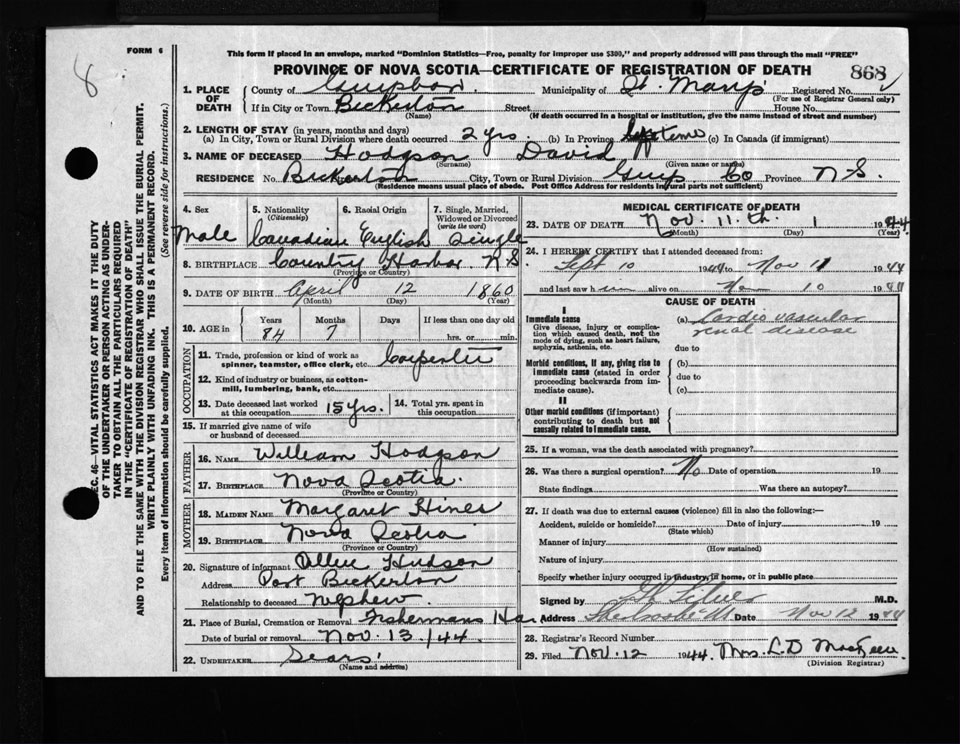 8
FORM 6
This form if placed in an envelope, marked "Dominion Statistics—Free, penalty for improper use $300," and properly addressed will pass through the mail "FREE"
PROVINCE OF NOVA SCOTIA—CERTIFICATE OF REGISTRATION OF DEATH
868
1. PLACE OF DEATH
County of Municipality of St. Marys Registered No.
(For use of Registrar General only)
If in City or Town Bickerton Street House No.
(Name) (If death occurred in a hospital or institution, give the name instead of street and number)
2. LENGTH OF STAY (in years, months and days)
(a) In City, Town or Rural Division where death occurred 2 yrs. (b) In Province lifetime (c) In Canada (if immigrant)
3. NAME OF DECEASED Hodgson David
(Surname) (Given name or names)
RESIDENCE No. Bickerton City, Town or Rural Division Guys Co Province N.S.
(Residence means usual place of abode. Post Office Address for residents in rural parts not sufficient)
4. Sex 5. Nationality (Citizenship) 6. Racial Origin 7. Single, Married, Widowed or Divorced (write the word)
Male Canadian English Single
8. BIRTHPLACE Country Harbor N.S
(Province or Country)
9. DATE OF BIRTH April 12 1860
(Month) (Day) (Year)
10. AGE in Years Months Days If less than one day old
84 7 hrs. or min.
OCCUPATION
11. Trade, profession or kind of work as spinner, teamster, office clerk, etc. Carpenter
12. Kind of industry or business, as cotton-mill, lumbering, bank, etc.
13. Date deceased last worked at this occupation 15 yrs. 14. Total yrs. spent in this occupation
15. If married give name of wife or husband of deceased
FATHER
16. NAME William Hodgson
17. BIRTHPLACE Nova Scotia
(Province or Country)
MOTHER
18. MAIDEN NAME Margaret Hines
19. BIRTHPLACE Nova Scotia
(Province or Country)
20. Signature of informant Hudson
Address Port Bickerton
Relationship to deceased Nephew
21. Place of Burial, Cremation or Removal Fishermans Har
Date of burial or removal Nov. 13/44.
22. UNDERTAKER Sears
(Name and address)
MEDICAL CERTIFICATE OF DEATH
23. DATE OF DEATH Nov. 11.th. 1 1944
(Month) (Day) (Year)
24. I HEREBY CERTIFY that I attended deceased from:
Sept 10 1944 to Nov 11 1944
and last saw him alive on Nov 10 1944
CAUSE OF DEATH
I
Immediate cause (a) Cardio vascular
Give disease, injury or complication which caused death, not the mode of dying, such as heart failure, asphyxia, asthenia, etc. renal disease
due to
Morbid conditions, if any, giving rise to immediate cause (stated in order proceeding backwards from immediate cause). (b)
due to
(c)
II
Other morbid conditions (if important) contributing to death but not causally related to immediate cause.
25. If a woman, was the death associated with pregnancy?
26. Was there a surgical operation? No Date of operation 19
State findings Was there an autopsy?
27. If death was due to external causes (violence) fill in also the following:—
Accident, suicide or homicide? Date of injury 19
(State which)
Manner of injury
(How sustained)
Nature of injury
Specify whether injury occurred in industry, in home, or in public place
Signed by M.D.
Address Date Nov 12 1944
28. Registrar's Record Number
29. Filed Nov. 12 1944. Mrs. L D
(Division Registrar)
SEC. 46—VITAL STATISTICS ACT MAKES IT THE DUTY
OF THE UNDERTAKER OR PERSON ACTING AS UNDER-
TAKER TO OBTAIN ALL THE PARTICULARS REQUIRED
IN THE "CERTIFICATE OF REGISTRATION OF DEATH"
AND TO FILE THE SAME WITH THE DIVISION REGISTRAR WHO SHALL ISSUE THE BURIAL PERMIT.
WRITE PLAINLY WITH UNFADING INK. THIS IS A PERMANENT RECORD.
Every item of information should be carefully supplied. (See reverse side for instructions.)